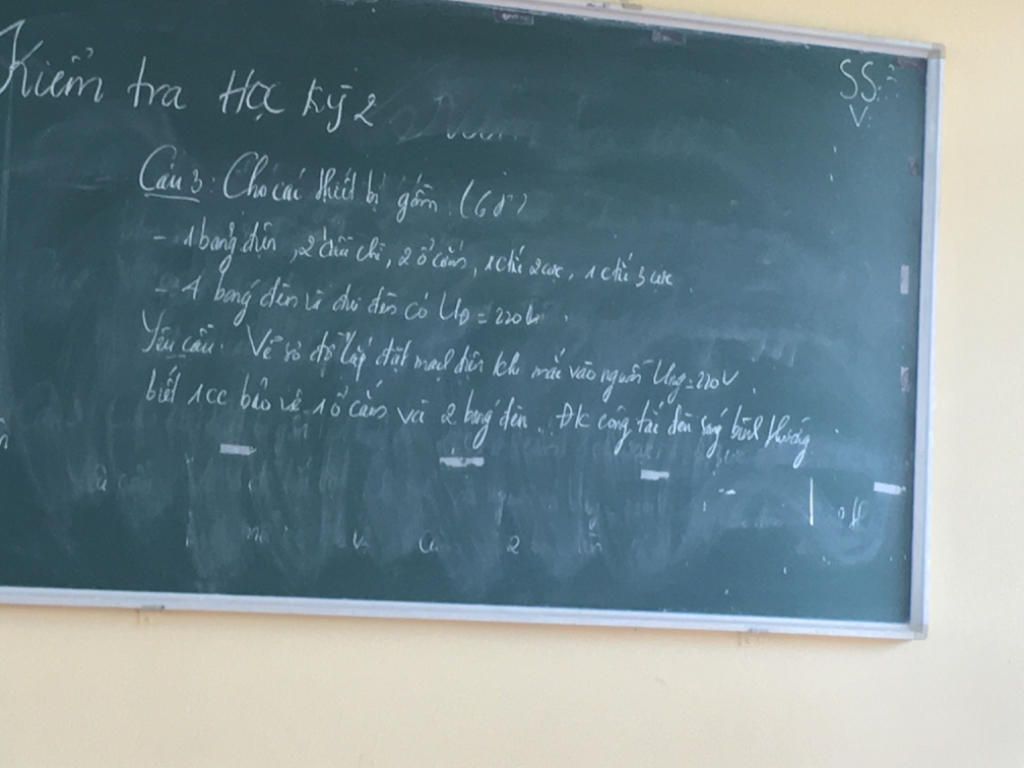 Kiểm tra Học kỳ 2
SS:
V:
Câu 3: Cho các thiết bị gồm (6đ)
- 1 bảng điện, 2 cầu chì, 2 ổ cắm, 1 ctắ 2 cực, 1 ctắ 3 cực
- 4 bóng đèn và đui đèn có UĐ = 220V.
Yêu cầu: Vẽ sơ đồ lắp đặt mạch điện khi mắc vào nguồn Ung = 220V.
biết 1CC bảo vệ 1 ổ cắm và 2 bóng đèn. ĐK công tắc đèn sáng bình thường